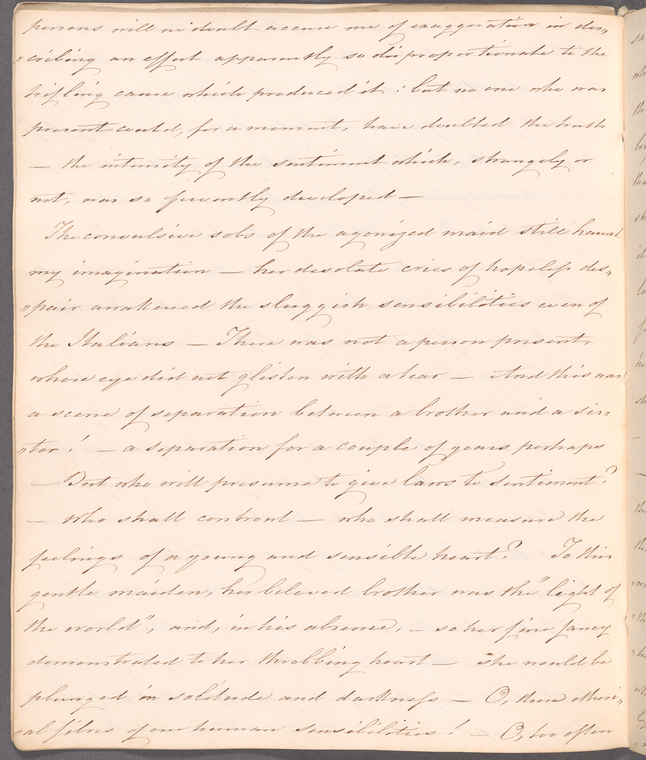 persons will no doubt accuse me of exaggeration in des„
„cribing an effect apparently so disproportionate to the
trifling cause which produced it : but no one who was
present could, for a moment, have doubted the truth
— the intensity of the sentiment which, strangely or
not, was so fervently developed —
The convulsive sobs of the agonized maid still haunt
my imagination — her desolate cries of hopeless des„
„pair awakened the sluggish sensibilities even of
the Italians — There was not a person present,
whose eye did not glisten with a tear — And this was
a scene of separation between a brother and a sis„
„ter! — a separation for a couple of years perhaps
— But who will presume to give laws to sentiment?
— who shall control — who shall measure the
feelings of a young and sensible heart? To this
gentle maiden, her beloved brother was the "light of
the world", and, in his absence, — so her fine fancy
demonstrated to her throbbing heart — she would be
plunged in solitude and darkness — O, these
„al fibres of our human sensibilities! — O, too often